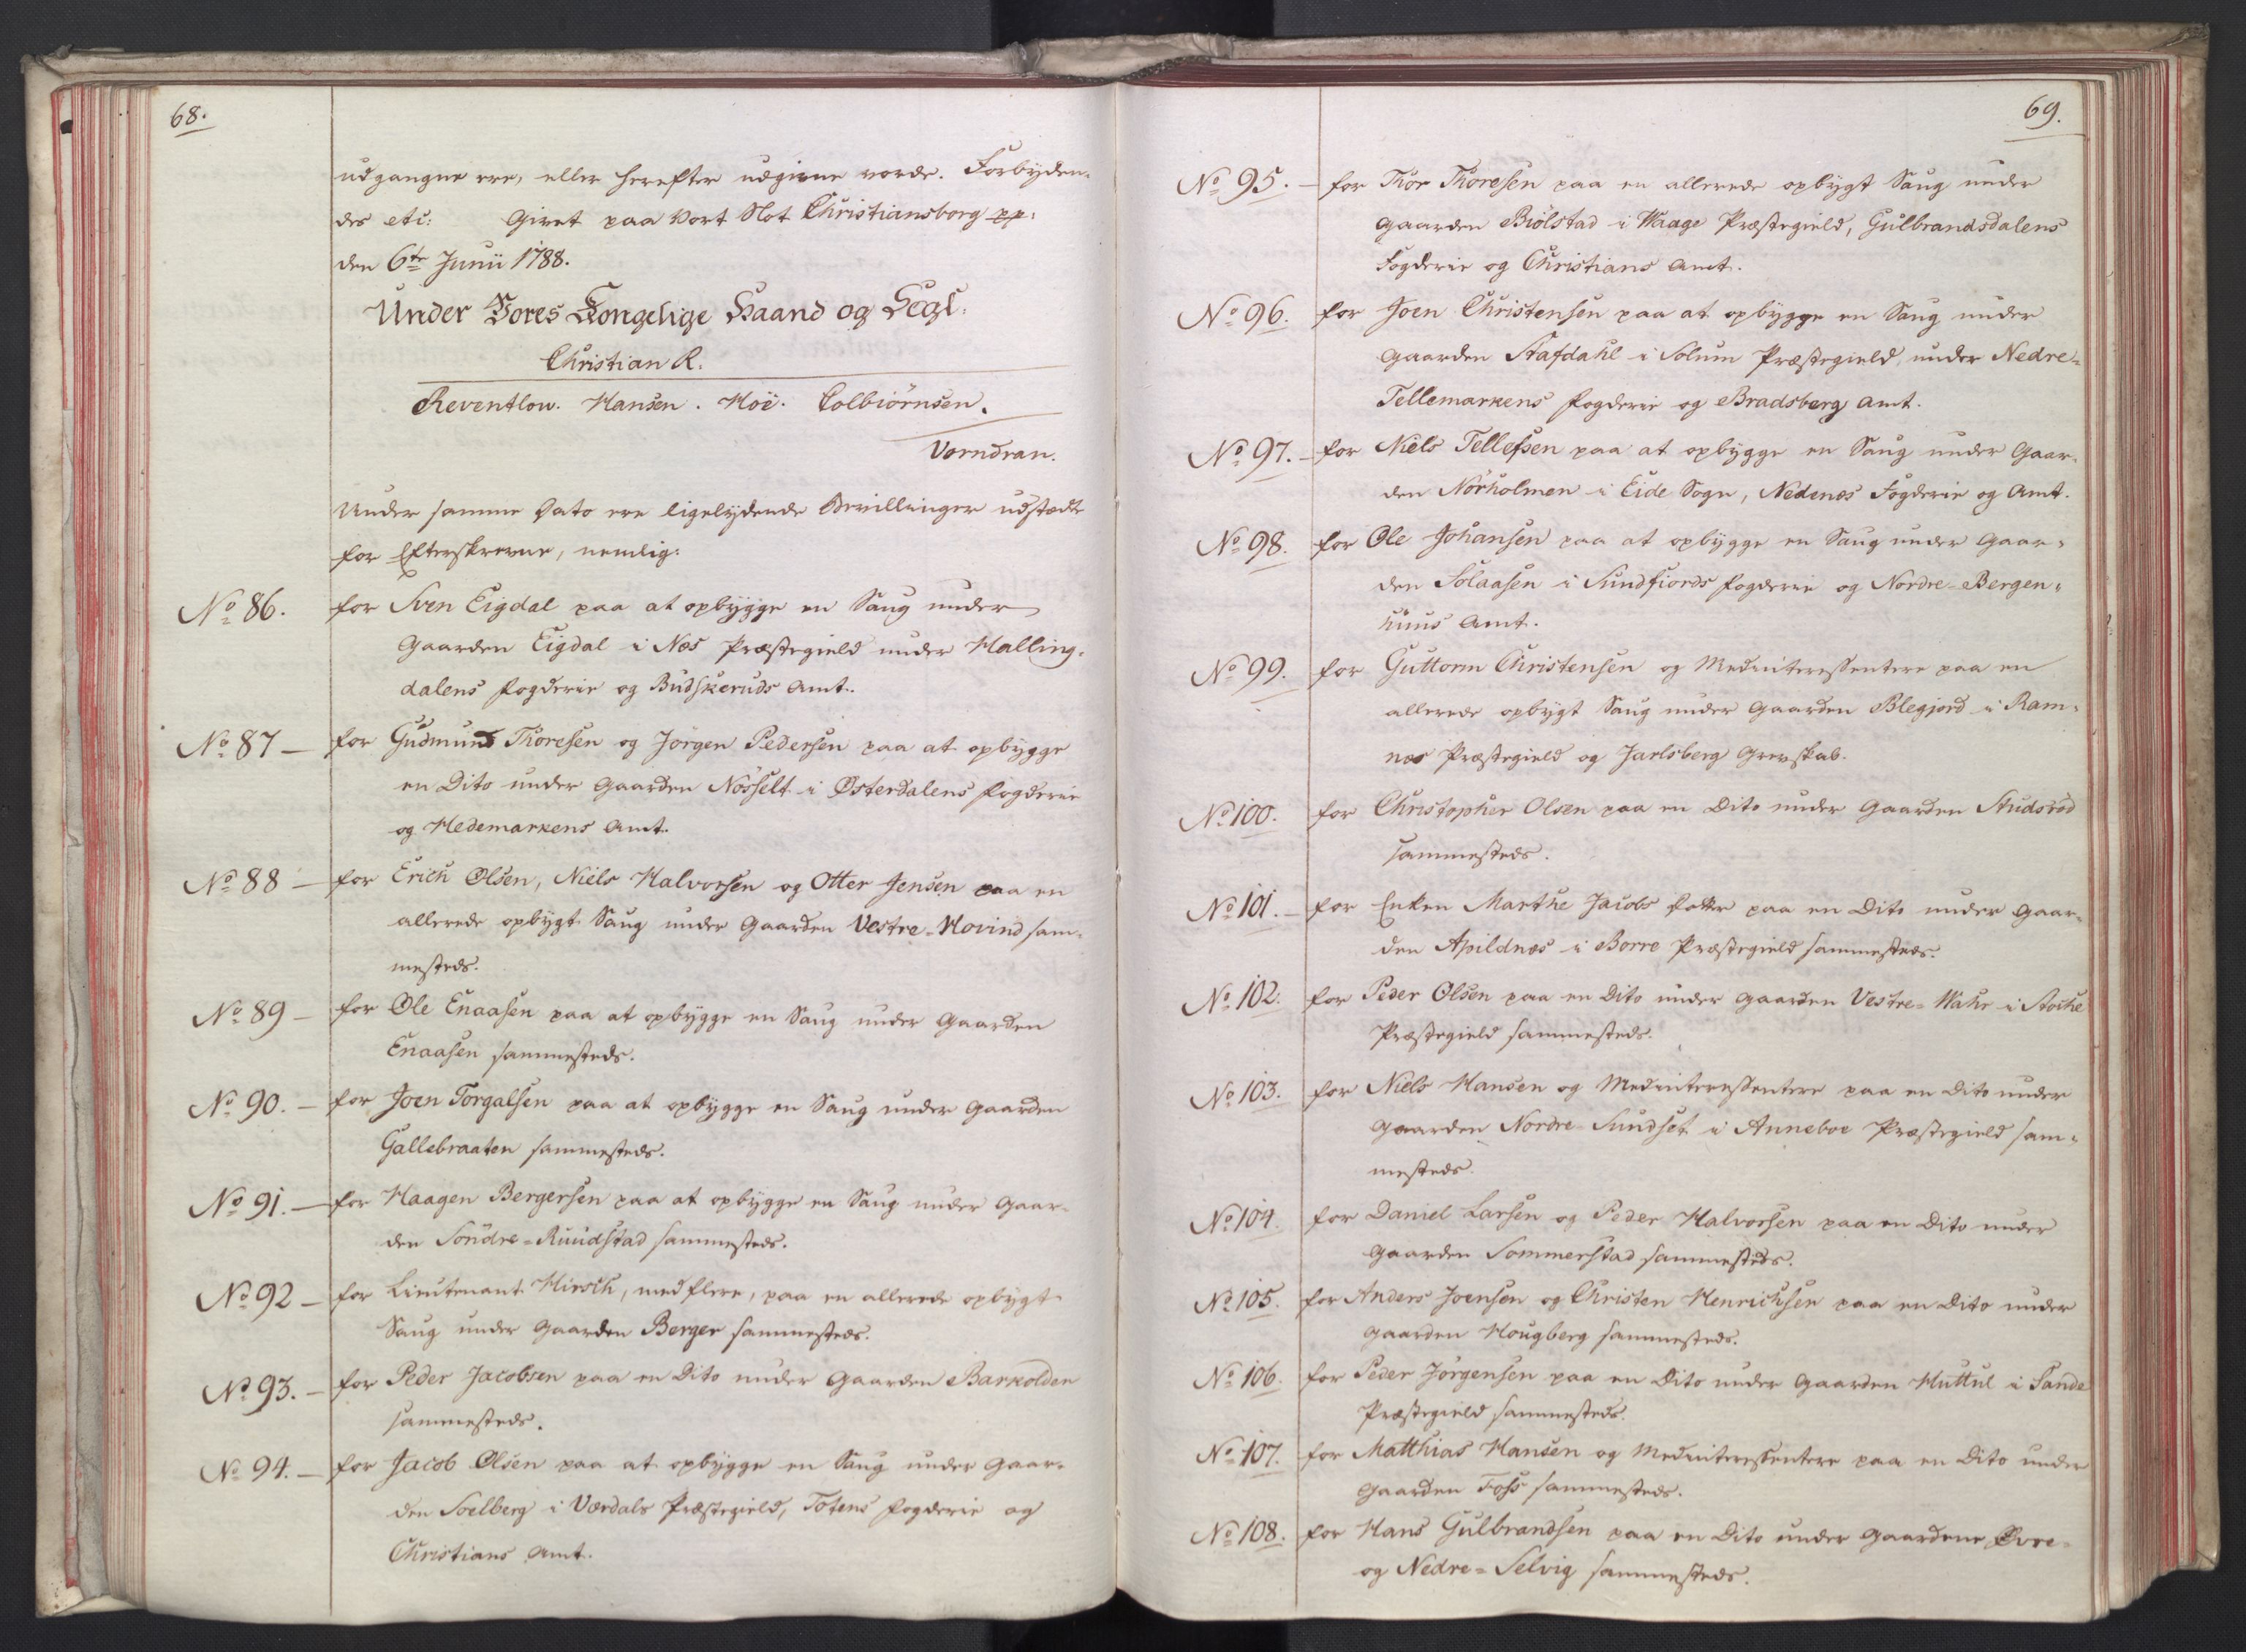 68.
udgangne ere, eller herefter udgivne vorde. Forbyden-
des etc: Givet paa Vort Slot Christiansborg pp:
den 6te Junii 1788.
Under Vores Kongelige Haand og Segl.
Christian R.
Reventlow. Hansen. Hoë. Colbiørnsen.
Vorndran.
Under samme Dato ere ligelydende Bevillinger udstædte
for Efterskrevne, nemlig:
No 86. for Sven Eigdal paa at opbygge en Saug under
Gaarden Eigdal i Næs Præstegield under Halling-
dalens Fogderie og Budskeruds Amt.
No 87 — for Gudmund Thoresen og Jörgen Pedersen paa at opbygge
en Dito under Gaarden Nösselt i Østerdalens Fogderie
og Hedemarkens Amt.
No 88 — for Erich Olsen, Niels Halvorsen og Otter Jensen paa en
allerede opbygt Saug under Gaarden Vestre-Hovind sam-
mesteds.
No 89 — for Ole Enaasen paa at opbygge en Saug under Gaarden
Enaasen sammesteds.
No 90. — for Joen Torgalsen paa at opbygge en Saug under Gaarden
Gallebraaten sammesteds.
No 91. — for Haagen Bergersen paa at opbygge en Saug under Gaar-
den Söndre-Ruudstad sammesteds.
No 92 — for Lieutenant Hirsch, med flere, paa en allerede opbygt
Saug under Gaarden Berger sammesteds.
No 93. — for Peder Jacobsen paa en Dito under Gaarden Barkolden
sammesteds.
No 94. — for Jacob Olsen paa at opbygge en Saug under Gaar-
den Soelberg i Værdals Præstegield, Totens Fogderie og
Christians Amt.
69.
No 95. — for Thor Thoresen paa en allerede opbygt Saug under
Gaarden Biölstad i Waage Præstegield, Gulbrandsdalens
Fogderie og Christians Amt.
No 96. for Joen Christensen paa at opbygge en Saug under
Gaarden Stafdahl i Solum Præstegield under Nedre-
Tellemarkens Fogderie og Bradsberg Amt.
No 97. — for Niels Tellefsen paa at opbygge en Saug under Gaar-
den Nörholmen i Eide Sogn, Nedenæs Fogderie og Amt.
No 98. for Ole Johansen paa at opbygge en Saug under Gaar-
den Solaasen i Sundfiords Fogderie og Nordre-Bergen-
huus Amt.
No 99. for Guttorm Christensen og Medinteressentere paa en
allerede opbygt Saug under Gaarden Blegjord i Ram-
næs Præstegield og Jarlsberg Grevskab.
No 100. for Christopher Olsen paa en Dito under Gaarden Studsröd
sammesteds.
No 101. — for Enken Marthe Jacobs Datter paa en Dito under Gaar-
den Apildnæs i Borre Præstegield sammesteds.
No 102. for Peder Olsen paa en Dito under Gaarden Vestre-Wahr i Stoche
Præstegield sammesteds.
No 103. for Niels Hansen og Medinteressentere paa en Dito under
Gaarden Nordre-Sundset i Anneboe Præstegield sam-
mesteds.
No 104. for Daniel Larsen og Peder Halvorsen paa en Dito under
Gaarden Sommerstad sammesteds.
No 105. for Anders Joensen og Christen Henrichsen paa en Dito under
Gaarden Hougberg sammesteds.
No 106. for Peder Jörgensen paa en Dito under Gaarden Huttul i Sande
Præstegield sammesteds.
No 107. for Matthias Hansen og Medinteressentere paa en Dito under
Gaarden Foss sammesteds.
No 108. for Hans Gulbrandsen paa en Dito under Gaardene Øvre-
og Nedre-Selvig sammesteds.